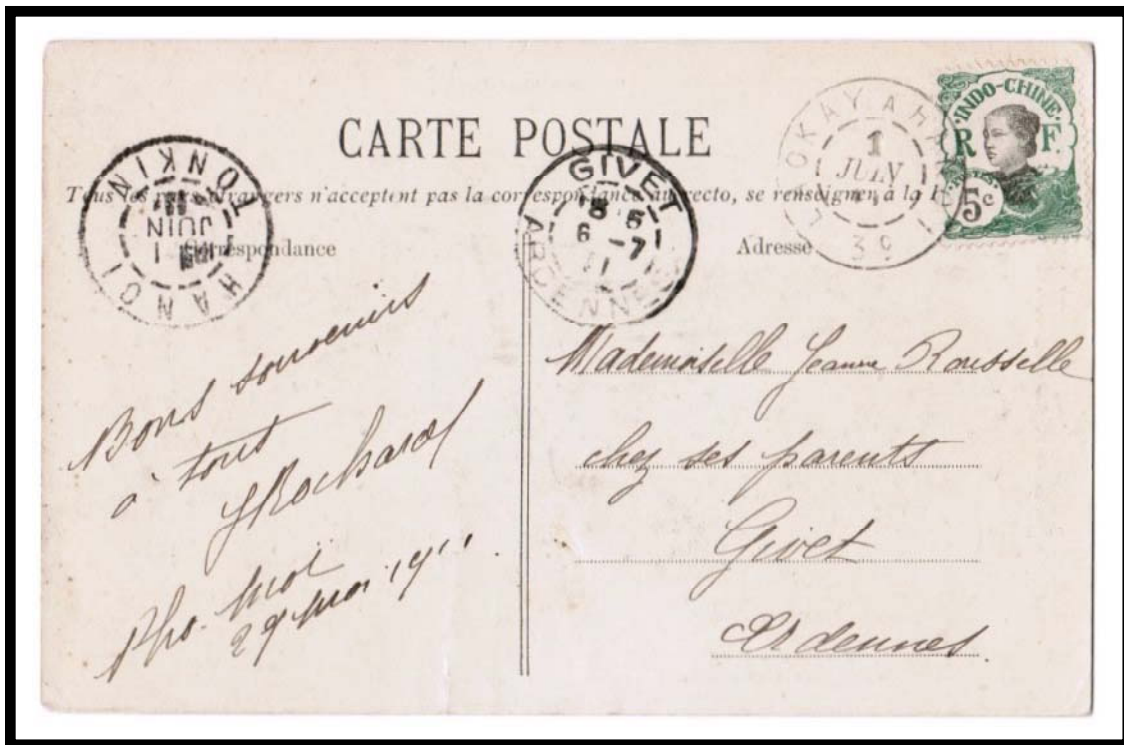 CARTE POSTALE
Tous les pays étrangers n'acceptent pas la correspondance au recto, se renseigner à la
Correspondance
Adresse
HANOI
TONKIN
1
JUIN
11
GIVET
ARDENNES
6 -7
11
LAOKAY A HANOI
1
JUIN
11
39
INDO-CHINE
R F
5c
Bons souvenirs
à tous
JRochard
Pho-Moï
29 Mai 1911
Mademoiselle Jeanne Rousselle
chez ses parents
Givet
Ardennes.